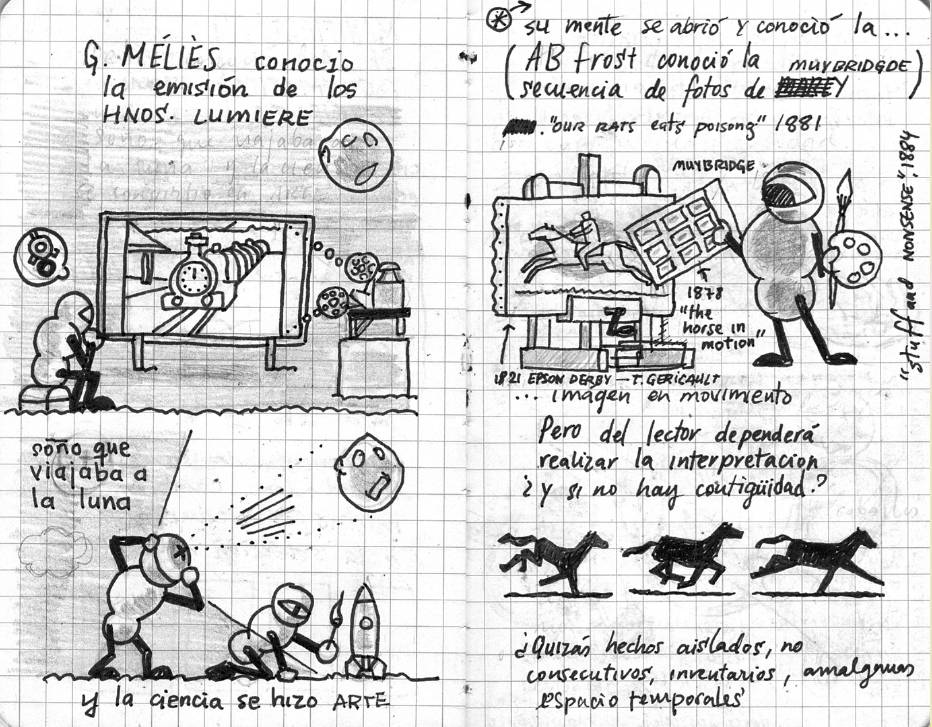 G. MÉLIÈS conocio
la emisión de los
HNOS. LUMIERE
soño que
viajaba a
la luna
y la ciencia se hizo ARTE
su mente se abrió y conoció la...
(AB frost conoció la MUYBRIDGDE)
secuencia de fotos de
."OUR RATS eats poisong" 1881
MUYBRIDGE
1878
"the
horse in
motion"
"stuff and NONSENSE", 1884
1821 EPSON DERBY — T. GERICAULT
... imagen en movimiento
Pero del lector dependerá
realizar la interpretacion
¿y si no hay contigüidad?
¿Quizás hechos aislados, no
consecutivos, inventarios, amalgamas
espacio temporales